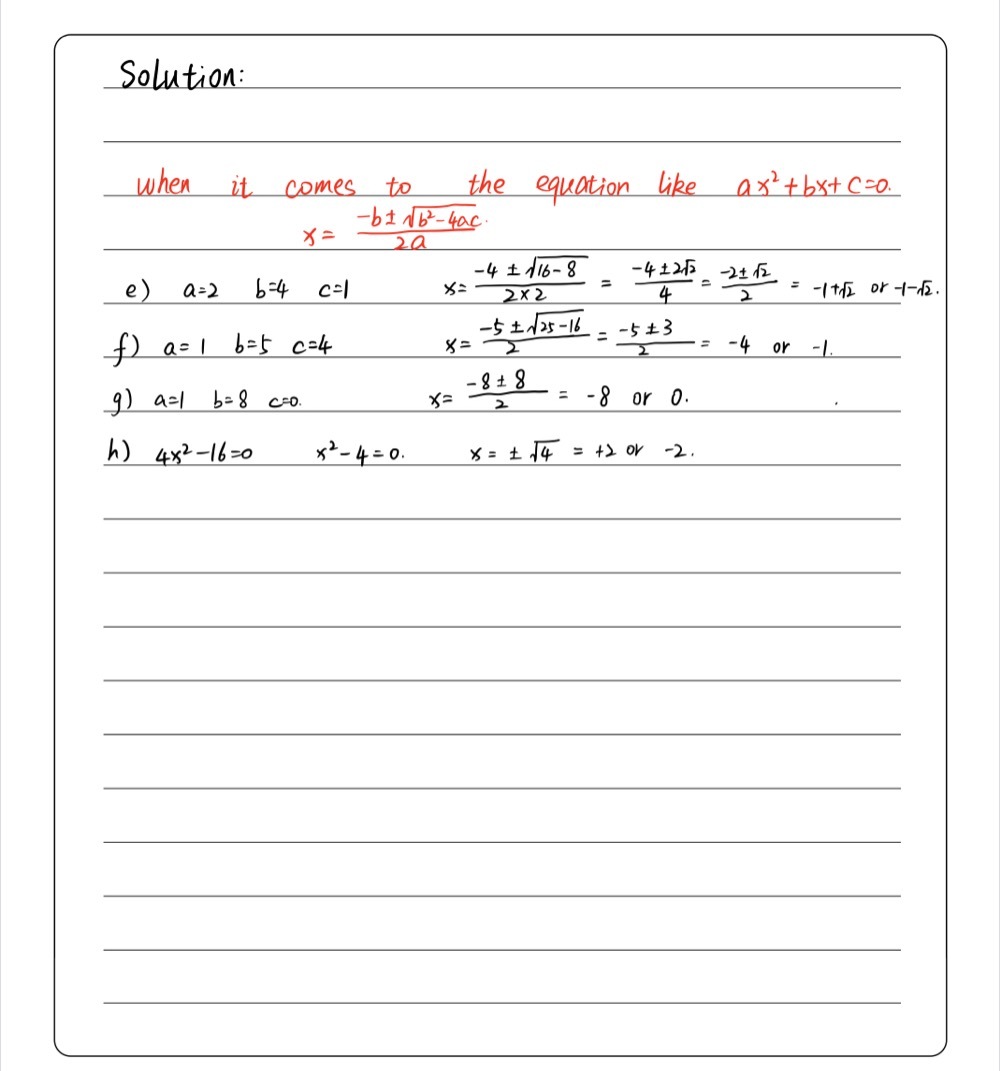 Solution:
when it comes to the equation like ax²+bx+c=0.
x = (-b±√(b²-4ac))/(2a).
e) a=2 b=4 c=1 x= (-4±√(16-8))/(2×2) = (-4±2√2)/4 = (-2±√2)/2 = -1+√2 or -1-√2.
f) a=1 b=5 c=4 x= (-5±√(25-16))/2 = (-5±3)/2 = -4 or -1.
g) a=1 b=8 c=0. x= (-8±8)/2 = -8 or 0.
h) 4x²-16=0 x²-4=0. x = ±√4 = +2 or -2.